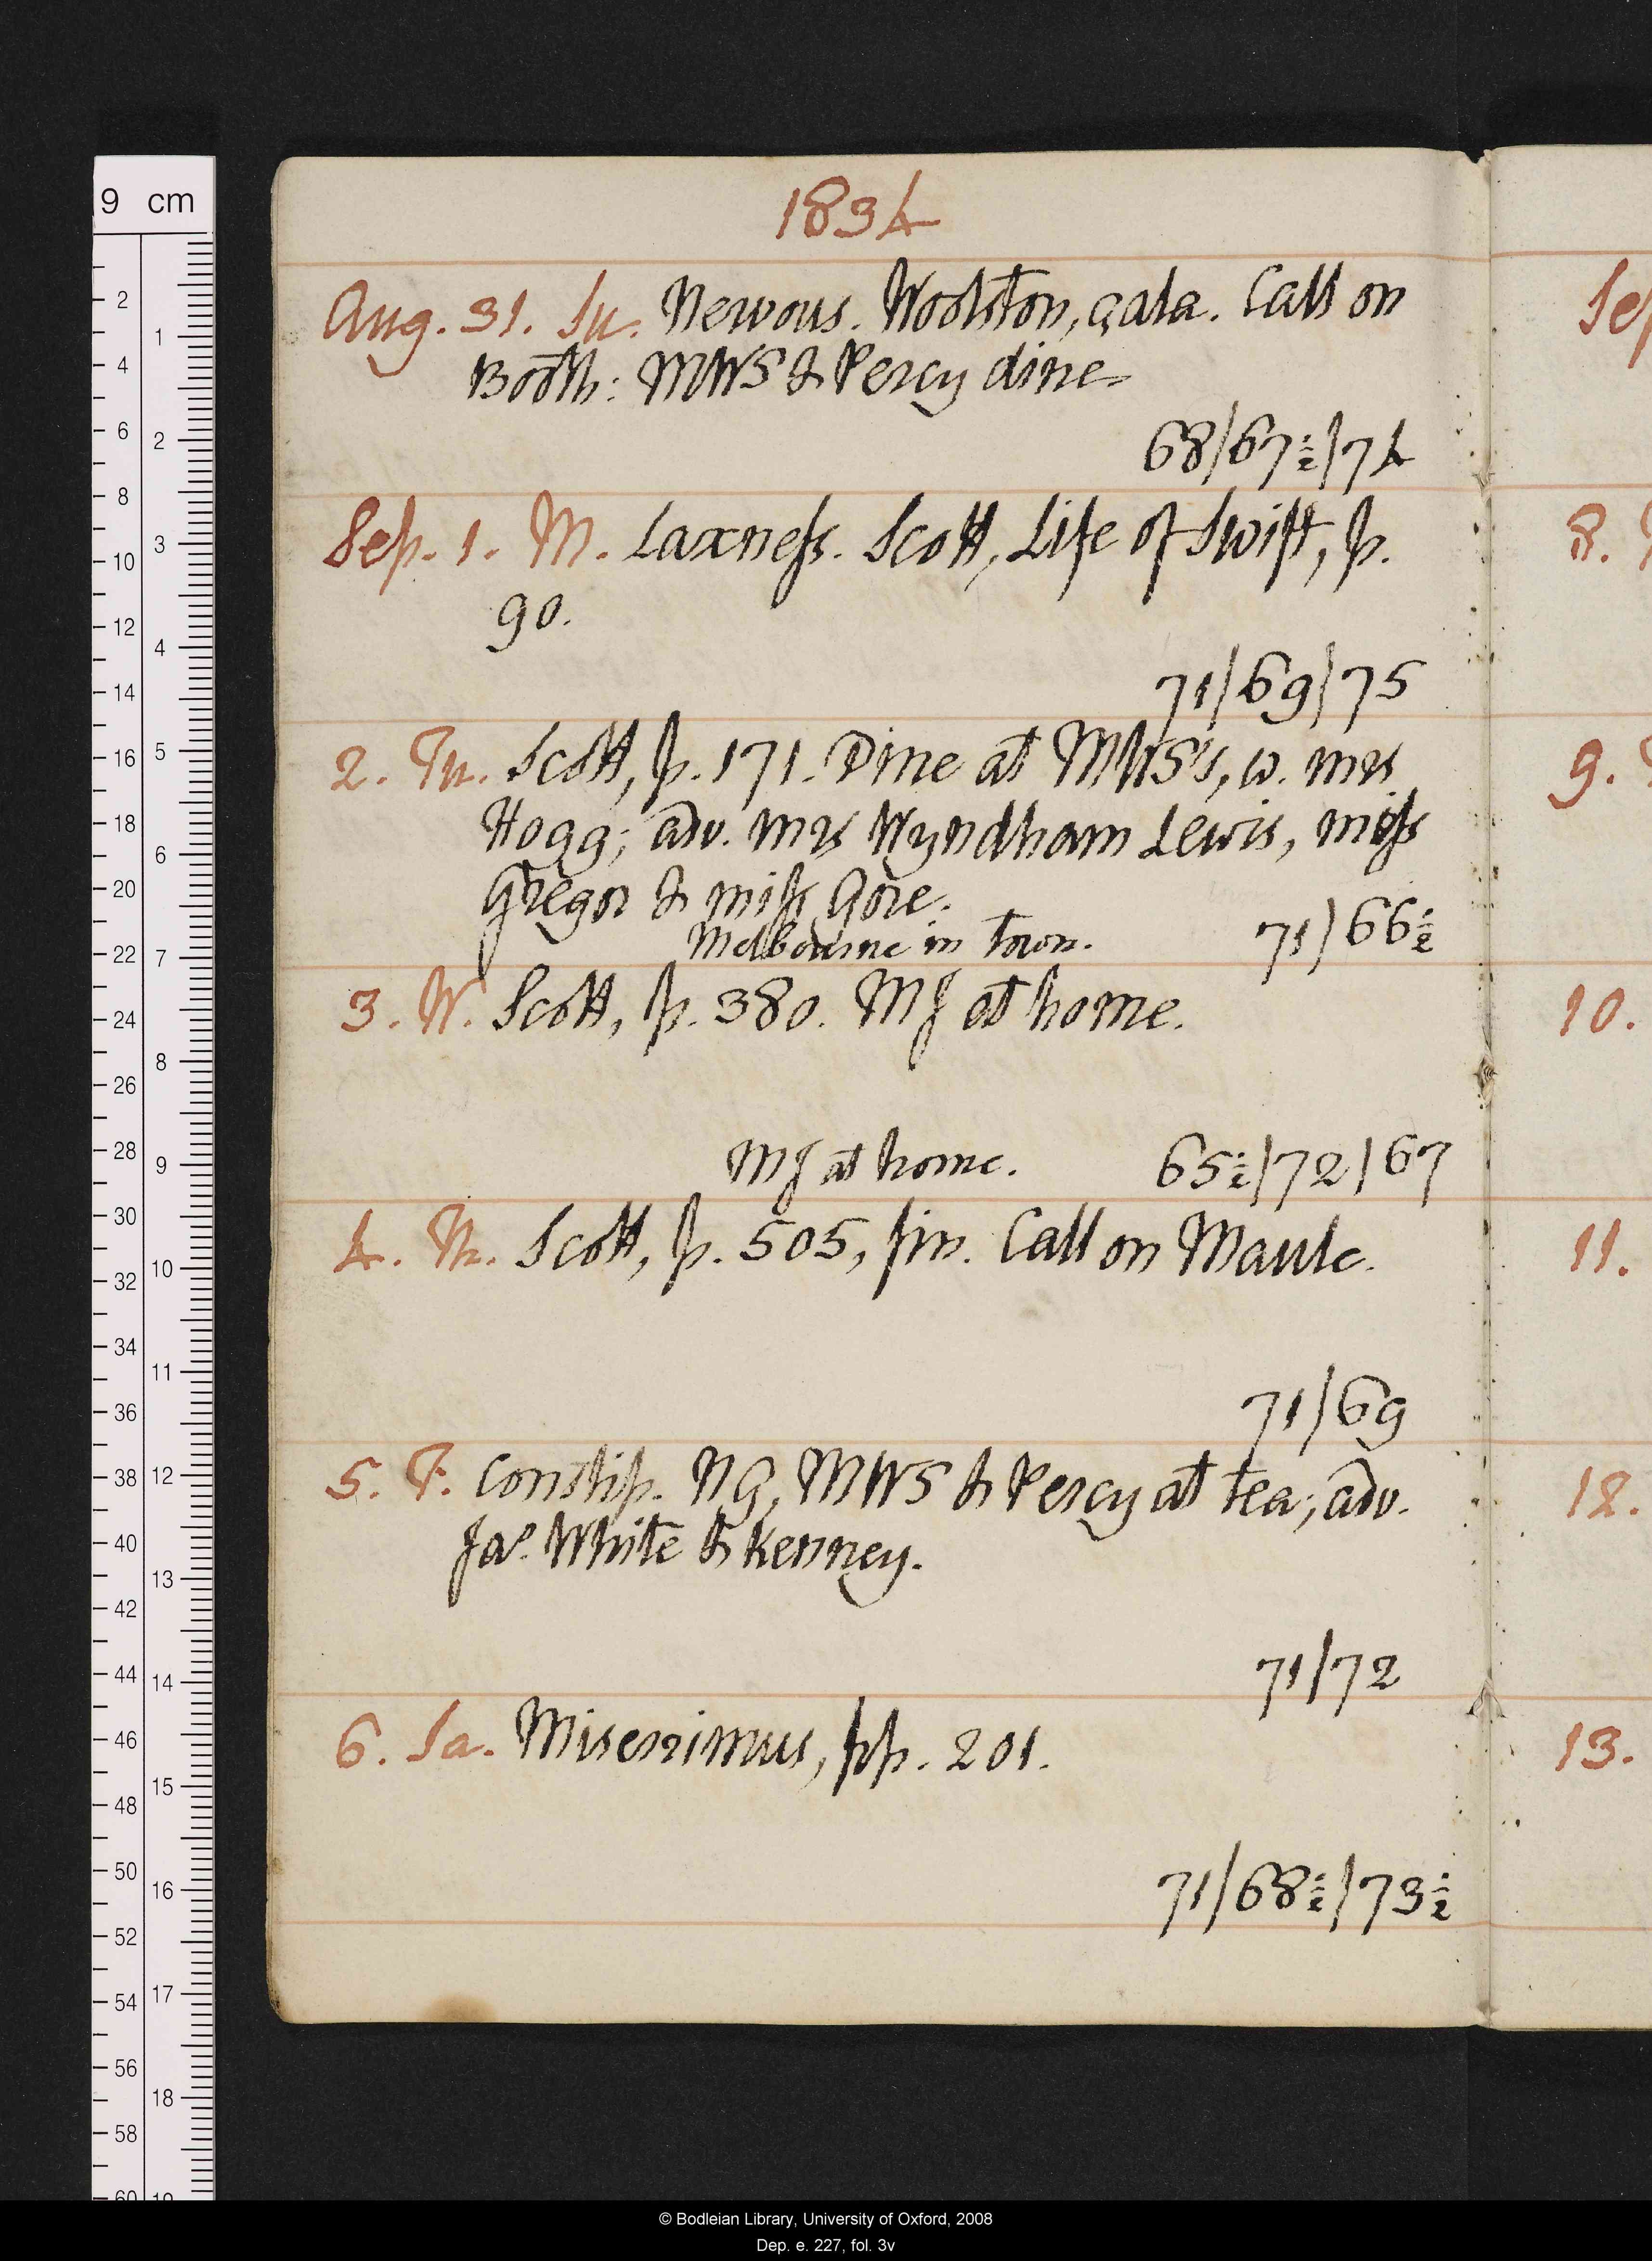 1834
Aug. 31. Su. Nervous. Woolston, çala. Call on
Booth: MWS & Percy dine
68/67½/74
Sep. 1. M. Laxneſs. Scott, Life of Swift, p.
90.
71/69/75
2. Tu. Scott, p. 171. Dine at MWS's, w. mrs
Hogg; adv. mrs Wyndham Lewis, miſs
Gregor & miſs Gore.
Melbourne in town. 71/66½
3. W. Scott, p. 380. MJ at home.
MJ at home. 65½/72/67
4. Th. Scott, p. 505, fin. Call on Maule.
71/69
5. F. Constip. NG, MWS & Percy at tea; adv.
Jas. White & Kenney.
71/72
6. Sa. Miserrimus, pp. 201.
71/68½/73½
Sep
8.
9.
10.
11.
12.
13.
9 cm
2
4
6
8
10
12
14
16
18
20
22
24
26
28
30
32
34
36
38
40
42
44
46
48
50
52
54
56
58
60
1
2
3
4
5
6
7
8
9
10
11
12
13
14
15
16
17
18
© Bodleian Library, University of Oxford, 2008
Dep. e. 227, fol. 3v